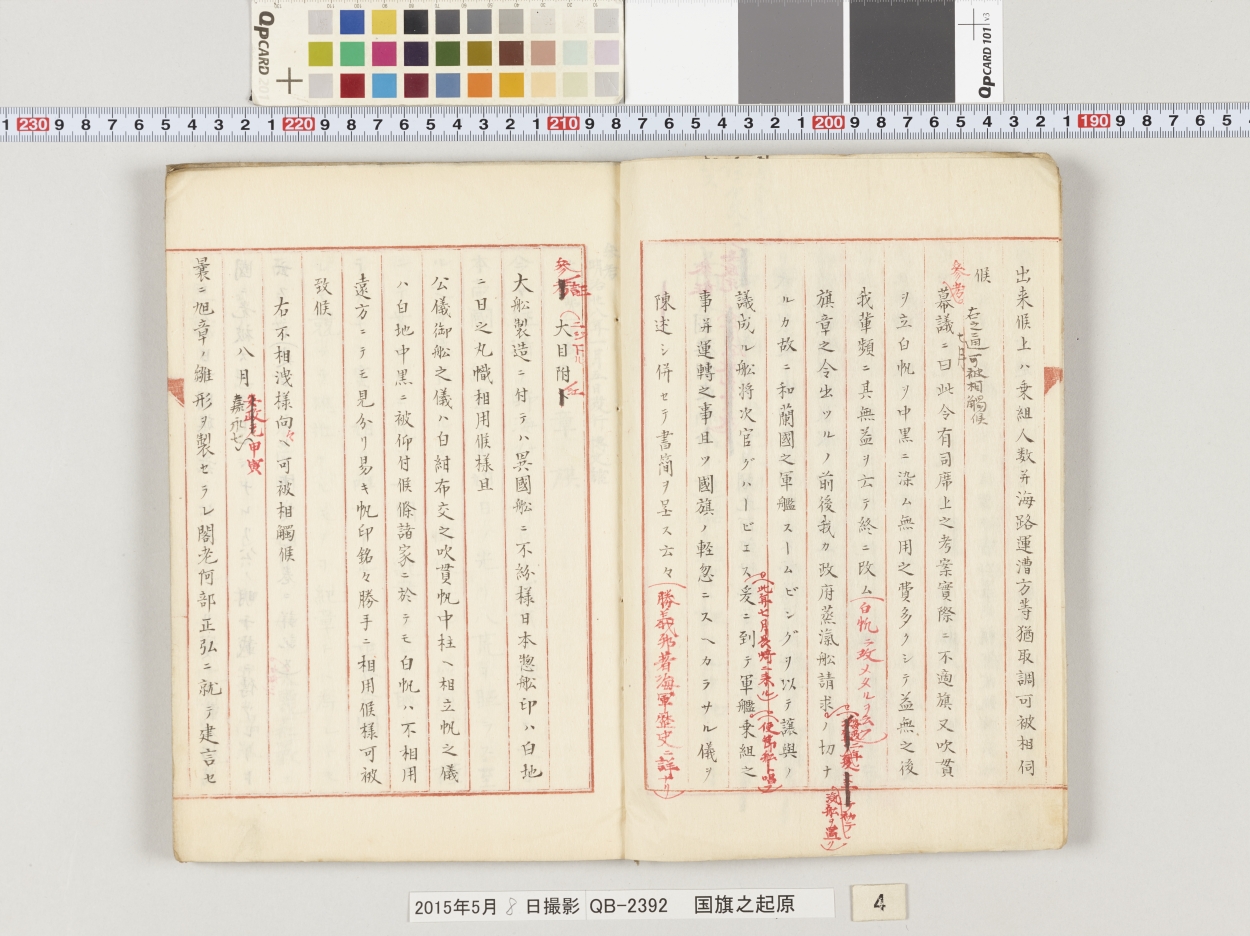 出来候上ハ乗組人数并海路運漕方等猶取調可被相伺
候
右之通可被相觸候
七月
参考
幕議ニ曰此令有司席上之考案實際ニ不適旗又吹貫
ヲ立白帆ヲ中黒ニ染ム無用之費多クシテ益無之後
我輩頻ニ其無益ヲ云テ終ニ改ム(白帆ニ改メタルヲ云フ)
旗章之令出ツルノ前後我カ政府蒸滊舩請求ノ切ナ
滊船ヲ
ルカ故ニ和蘭國之軍艦スームビングヲ以テ譲與ノ
議成ル舩将次官グハービエス爰ニ到テ軍艦乗組之
(此年七月長崎ニ来ル)
事并運轉之事且ツ國旗ノ軽忽ニスヘカラサル儀ヲ
陳述シ併セテ書簡ヲ呈ス云々(勝義邦著海軍歴史ニ詳ナリ)
参考
大目附
紅
大舩製造ニ付テハ異國舩ニ不紛様日本惣舩印ハ白地
ニ日之丸幟相用候様且
公儀御舩之儀ハ白紺布交之吹貫帆中柱ヘ相立帆之儀
ハ白地中黒ニ被仰付候條諸家ニ於テモ白帆ハ不相用
遠方ニテモ見分リ易キ帆印銘々勝手ニ相用候様可被
致候
右不相洩様向々ヘ可被相觸候
八月
嘉永七
安政元甲寅
曩ニ旭章ノ雛形ヲ製セラレ閣老阿部正弘ニ就テ建言セ
QPCARD
QPCARD 101 v3
1 230 9 8 7 6 5 4 3 2 1 220 9 8 7 6 5 4 3 2 1 210 9 8 7 6 5 4 3 2 1 200 9 8 7 6 5 4 3 2 1 190 9 8 7 6 5
2015年5月 8 日撮影 QB-2392 国旗之起原
4